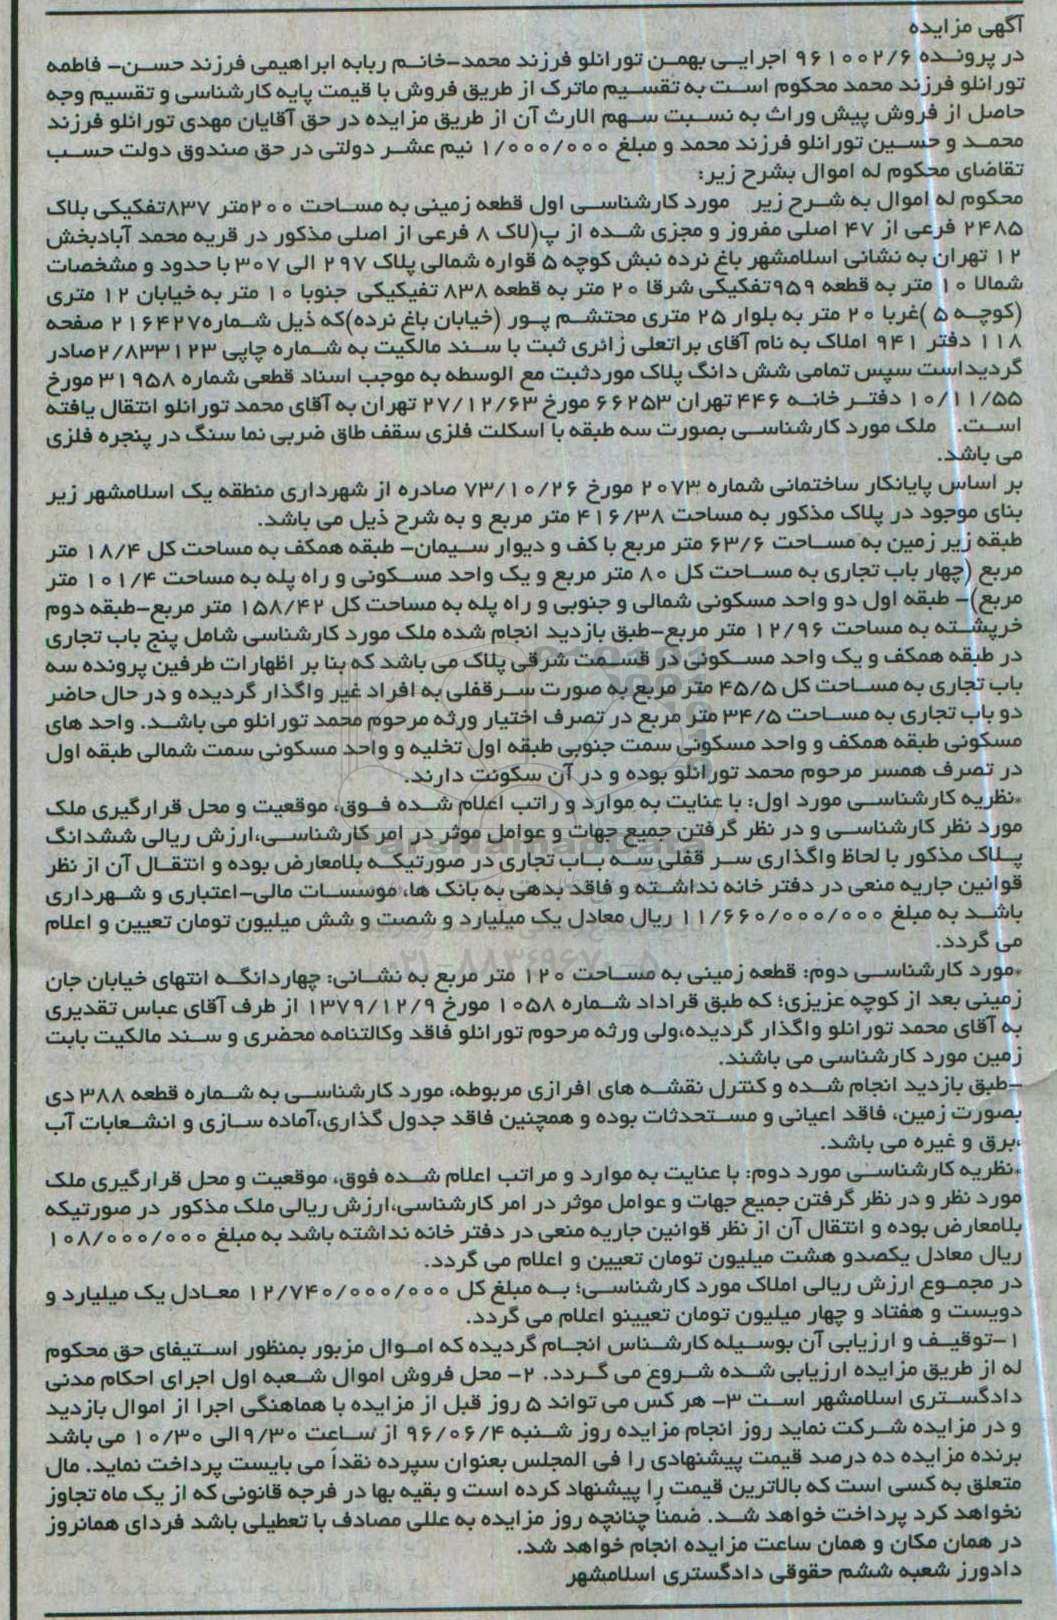 آگهی مزایده
در پرونده ۹۶۱۰۰۲/۶ اجرایی بهمن تورانلو فرزند محمد-خانم ربابه ابراهیمی فرزند حسن- فاطمه
تورانلو فرزند محمد محکوم است به تقسیم ماترک از طریق فروش با قیمت پایه کارشناسی و تقسیم وجه
حاصل از فروش پیش وراث به نسبت سهم الارث آن از طریق مزایده در حق آقایان مهدی تورانلو فرزند
محمد و حسین تورانلو فرزند محمد و مبلغ ۱/۰۰۰/۰۰۰ نیم عشر دولتی در حق صندوق دولت حسب
تقاضای محکوم له اموال بشرح زیر:
محکوم له اموال به شرح زیر مورد کارشناسی اول قطعه زمینی به مساحت ۲۰۰متر ۸۳۷تفکیکی بلاک
۲۴۸۵ فرعی از ۴۷ اصلی مفروز و مجزی شده از پ(لاک ۸ فرعی از اصلی مذکور در قریه محمد آبادبخش
۱۲ تهران به نشانی اسلامشهر باغ نرده نبش کوچه ۵ قواره شمالی پلاک ۲۹۷ الی ۳۰۷ با حدود و مشخصات
شمالا ۱۰ متر به قطعه ۹۵۹تفکیکی شرقا ۲۰ متر به قطعه ۸۳۸ تفیکیکی جنوبا ۱۰ متر به خیابان ۱۲ متری
(کوچه ۵ )غربا ۲۰ متر به بلوار ۲۵ متری محتشم پور (خیابان باغ نرده)که ذیل شماره۲۱۶۴۲۷ صفحه
۱۱۸ دفتر ۹۴۱ املاک به نام آقای براتعلی زائری ثبت با سند مالکیت به شماره چاپی ۲/۸۳۳۱۲۳صادر
گردیداست سپس تمامی شش دانگ پلاک موردثبت مع الوسطه به موجب اسناد قطعی شماره ۳۱۹۵۸ مورخ
۱۰/۱۱/۵۵ دفتر خانه ۴۴۶ تهران ۶۶۲۵۳ مورخ ۲۷/۱۲/۶۳ تهران به آقای محمد تورانلو انتقال یافته
است. ملک مورد کارشناسی بصورت سه طبقه با اسکلت فلزی سقف طاق ضربی نما سنگ در پنجره فلزی
می باشد.
بر اساس پایانکار ساختمانی شماره ۲۰۷۳ مورخ ۷۳/۱۰/۲۶ صادره از شهرداری منطقه یک اسلامشهر زیر
بنای موجود در پلاک مذکور به مساحت ۴۱۶/۳۸ متر مربع و به شرح ذیل می باشد.
طبقه زیر زمین به مساحت ۶۳/۶ متر مربع با کف و دیوار سیمان- طبقه همکف به مساحت کل ۱۸/۴ متر
مربع (چهار باب تجاری به مساحت کل ۸۰ متر مربع و یک واحد مسکونی و راه پله به مساحت ۱۰۱/۴ متر
مربع)- طبقه اول دو واحد مسکونی شمالی و جنوبی و راه پله به مساحت کل ۱۵۸/۴۲ متر مربع-طبقه دوم
خرپشته به مساحت ۱۲/۹۶ متر مربع-طبق بازدید انجام شده ملک مورد کارشناسی شامل پنج باب تجاری
در طبقه همکف و یک واحد مسکونی در قسمت شرقی پلاک می باشد که بنا بر اظهارات طرفین پرونده سه
باب تجاری به مساحت کل ۴۵/۵ متر مربع به صورت سرقفلی به افراد غیر واگذار گردیده و در حال حاضر
دو باب تجاری به مساحت ۳۴/۵ متر مربع در تصرف اختیار ورثه مرحوم محمد تورانلو می باشد. واحد های
مسکونی طبقه همکف و واحد مسکونی سمت جنوبی طبقه اول تخلیه و واحد مسکونی سمت شمالی طبقه اول
در تصرف همسر مرحوم محمد تورانلو بوده و در آن سکونت دارند.
*نظریه کارشناسی مورد اول: با عنایت به موارد و راتب اعلام شده فوق، موقعیت و محل قرارگیری ملک
مورد نظر کارشناسی و در نظر گرفتن جمیع جهات و عوامل موثر در امر کارشناسی،ارزش ریالی ششدانگ
پلاک مذکور با لحاظ واگذاری سر قفلی سه باب تجاری در صورتیکه بلامعارض بوده و انتقال آن از نظر
قوانین جاریه منعی در دفتر خانه نداشته و فاقد بدهی به بانک ها، موسسات مالی-اعتباری و شهرداری
باشد به مبلغ ۱۱/۶۶۰/۰۰۰/۰۰۰ ریال معادل یک میلیارد و شصت و شش میلیون تومان تعیین و اعلام
می گردد.
*مورد کارشناسی دوم: قطعه زمینی به مساحت ۱۲۰ متر مربع به نشانی: چهاردانگه انتهای خیابان جان
زمینی بعد از کوچه عزیزی؛ که طبق قراداد شماره ۱۰۵۸ مورخ ۱۳۷۹/۱۲/۹ از طرف آقای عباس تقدیری
به آقای محمد تورانلو واگذار گردیده،ولی ورثه مرحوم تورانلو فاقد وکالتنامه محضری و سند مالکیت بابت
زمین مورد کارشناسی می باشند.
-طبق بازدید انجام شده و کنترل نقشه های افرازی مربوطه، مورد کارشناسی به شماره قطعه ۳۸۸ دی
بصورت زمین، فاقد اعیانی و مستحدثات بوده و همچنین فاقد جدول گذاری،آماده سازی و انشعابات آب
،برق و غیره می باشد.
*نظریه کارشناسی مورد دوم: با عنایت به موارد و مراتب اعلام شده فوق، موقعیت و محل قرارگیری ملک
مورد نظر و در نظر گرفتن جمیع جهات و عوامل موثر در امر کارشناسی،ارزش ریالی ملک مذکور در صورتیکه
بلامعارض بوده و انتقال آن از نظر قوانین جاریه منعی در دفتر خانه نداشته باشد به مبلغ ۱۰۸/۰۰۰/۰۰۰
ریال معادل یکصدو هشت میلیون تومان تعیین و اعلام می گردد.
در مجموع ارزش ریالی املاک مورد کارشناسی؛ به مبلغ کل ۱۲/۷۴۰/۰۰۰/۰۰۰ معادل یک میلیارد و
دویست و هفتاد و چهار میلیون تومان تعیینو اعلام می گردد.
۱-توقیف و ارزیابی آن بوسیله کارشناس انجام گردیده که اموال مزبور بمنظور استیفای حق محکوم
له از طریق مزایده ارزیابی شده شروع می گردد. ۲- محل فروش اموال شعبه اول اجرای احکام مدنی
دادگستری اسلامشهر است ۳- هر کس می تواند ۵ روز قبل از مزایده با هماهنگی اجرا از اموال بازدید
و در مزایده شرکت نماید روز انجام مزایده روز شنبه ۹۶/۰۶/۴ از ساعت ۹/۳۰الی ۱۰/۳۰ می باشد
برنده مزایده ده درصد قیمت پیشنهادی را فی المجلس بعنوان سپرده نقداً می بایست پرداخت نماید. مال
متعلق به کسی است که بالاترین قیمت را پیشنهاد کرده است و بقیه بها در فرجه قانونی که از یک ماه تجاوز
نخواهد کرد پرداخت خواهد شد. ضمناً چنانچه روز مزایده به عللی مصادف با تعطیلی باشد فردای همانروز
در همان مکان و همان ساعت مزایده انجام خواهد شد.
دادورز شعبه ششم حقوقی دادگستری اسلامشهر